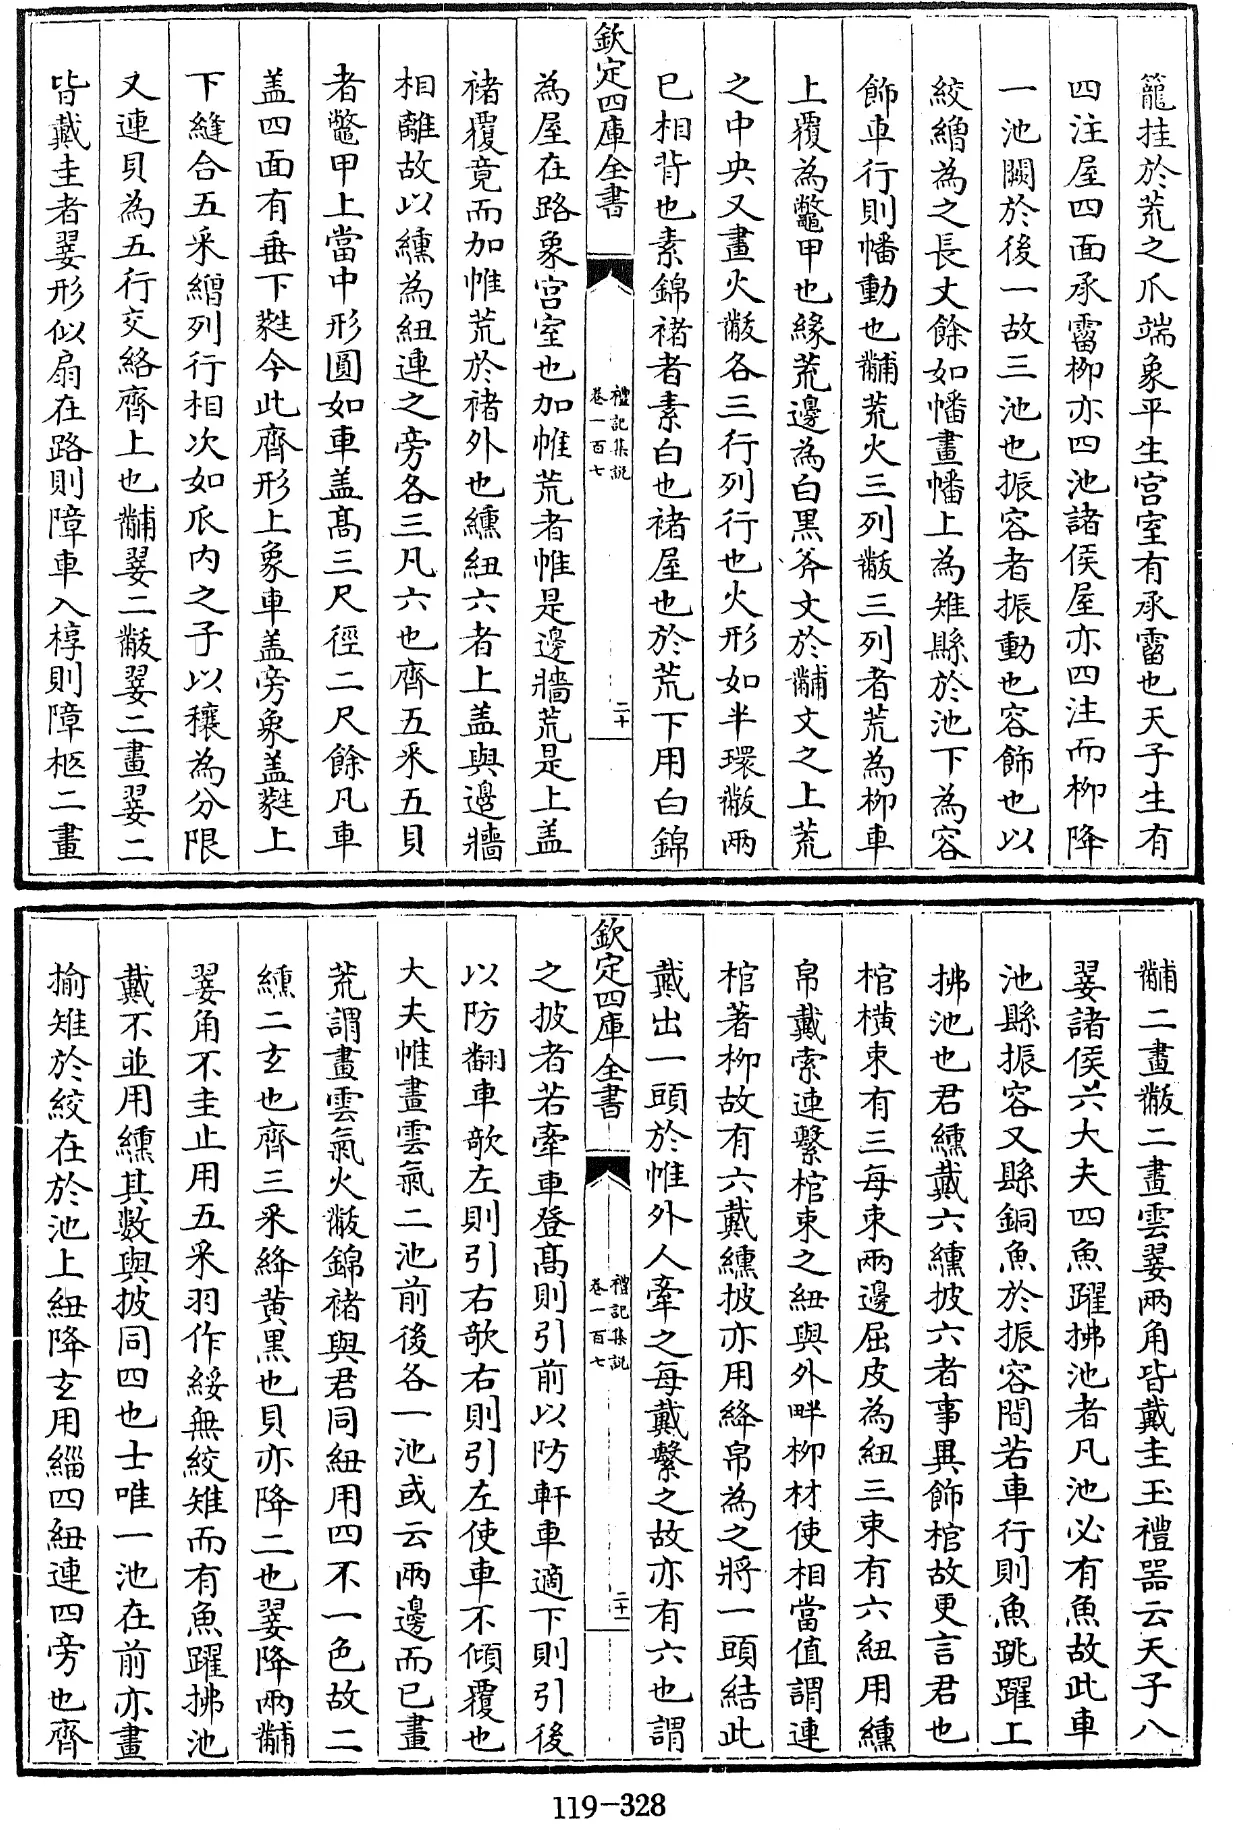 籠挂於荒之爪端象平生宫室有承霤也天子生有
四注屋四面承霤柳亦四池諸侯屋亦四注而柳降
一池闕於後一故三池也振容者振動也容飾也以
絞繒為之長丈餘如幡畫幡上為雉縣於池下為容
飾車行則幡動也黼荒火三列黻三列者荒為柳車
上覆為鼈甲也緣荒邊為白黑斧文於黼文之上荒
之中央又畫火黻各三行列行也火形如半環黻兩
已相背也素錦褚者素白也褚屋也於荒下用白錦
欽定四庫全書
禮記集説
卷一百七
二十
為屋在路象宫室也加帷荒者帷是邊牆荒是上盖
褚覆竟而加帷荒於褚外也纁紐六者上盖與邊牆
相離故以纁為紐連之旁各三凡六也齊五采五貝
者鼈甲上當中形圓如車盖高三尺徑二尺餘凡車
盖四面有垂下蕤今此齊形上象車盖旁象盖蕤上
下縫合五采繒列行相次如瓜内之子以穰為分限
又連貝為五行交絡齊上也黼翣二黻翣二畫翣二
皆戴圭者翣形似扇在路則障車入椁則障柩二畫
黼二畫黻二畫雲翣兩角皆戴圭玉禮器云天子八
翣諸侯六大夫四魚躍拂池者凡池必有魚故此車
池縣振容又縣銅魚於振容間若車行則魚跳躍上
拂池也君纁戴六纁披六者事異飾棺故更言君也
棺横束有三每束兩邊屈皮為紐三束有六紐用纁
帛戴索連繫棺束之紐與外畔柳材使相當值謂連
棺著柳故有六戴纁披亦用絳帛為之將一頭結此
戴出一頭於帷外人牽之每戴繫之故亦有六也謂
欽定四庫全書
禮記集説
卷一百七
二十一
之披者若牽車登高則引前以防軒車適下則引後
以防翻車欹左則引右欹右則引左使車不傾覆也
大夫帷畫雲氣二池前後各一池或云兩邊而已畫
荒謂畫雲氣火黻錦褚與君同紐用四不一色故二
纁二𤣥也齊三采絳黄黒也貝亦降二也翣降兩黼
翣角不圭止用五采羽作綏無絞雉而有魚躍拂池
戴不並用纁其數與披同四也士唯一池在前亦畫
揄雉於絞在於池上紐降𤣥用緇四紐連四旁也齊
119-328